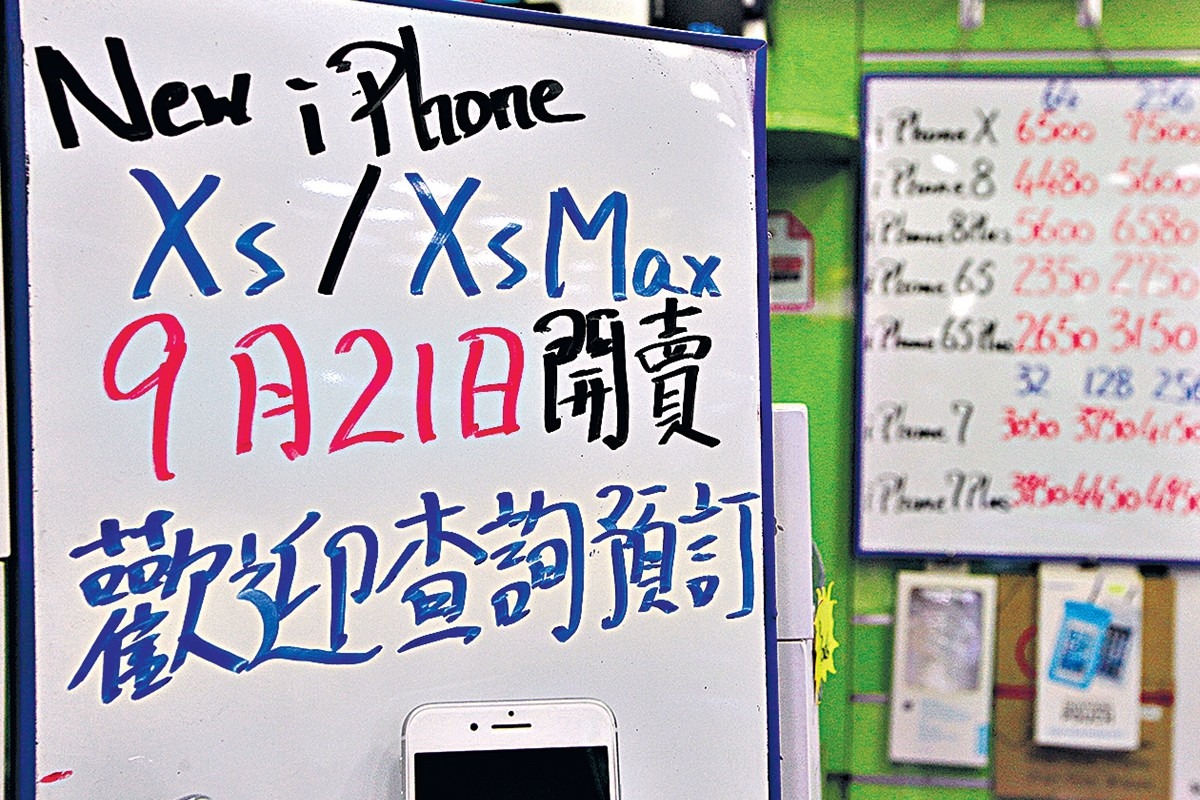 New iPhone
Xs / Xs Max
9月21日開賣
歡迎查詢預訂
64 256
iPhone X 6500 7500
iPhone 8 4480 5600
iPhone 8 Plus 5600 6580
iPhone 6S 2350 2750
iPhone 6S Plus 2650 3150
32 128 256
iPhone 7 3050 3750
iPhone 7 Plus 3850 4450